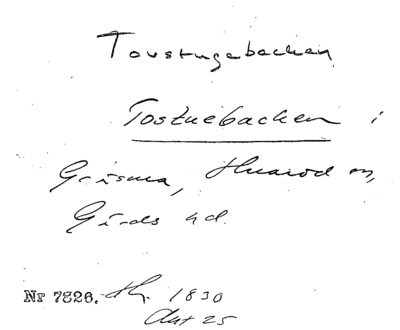 Tovstugebacken
Tostuebacken i
Grisma, Huaröd sn,
Gärds hd.
Nr 7826. 1830
Akt 25